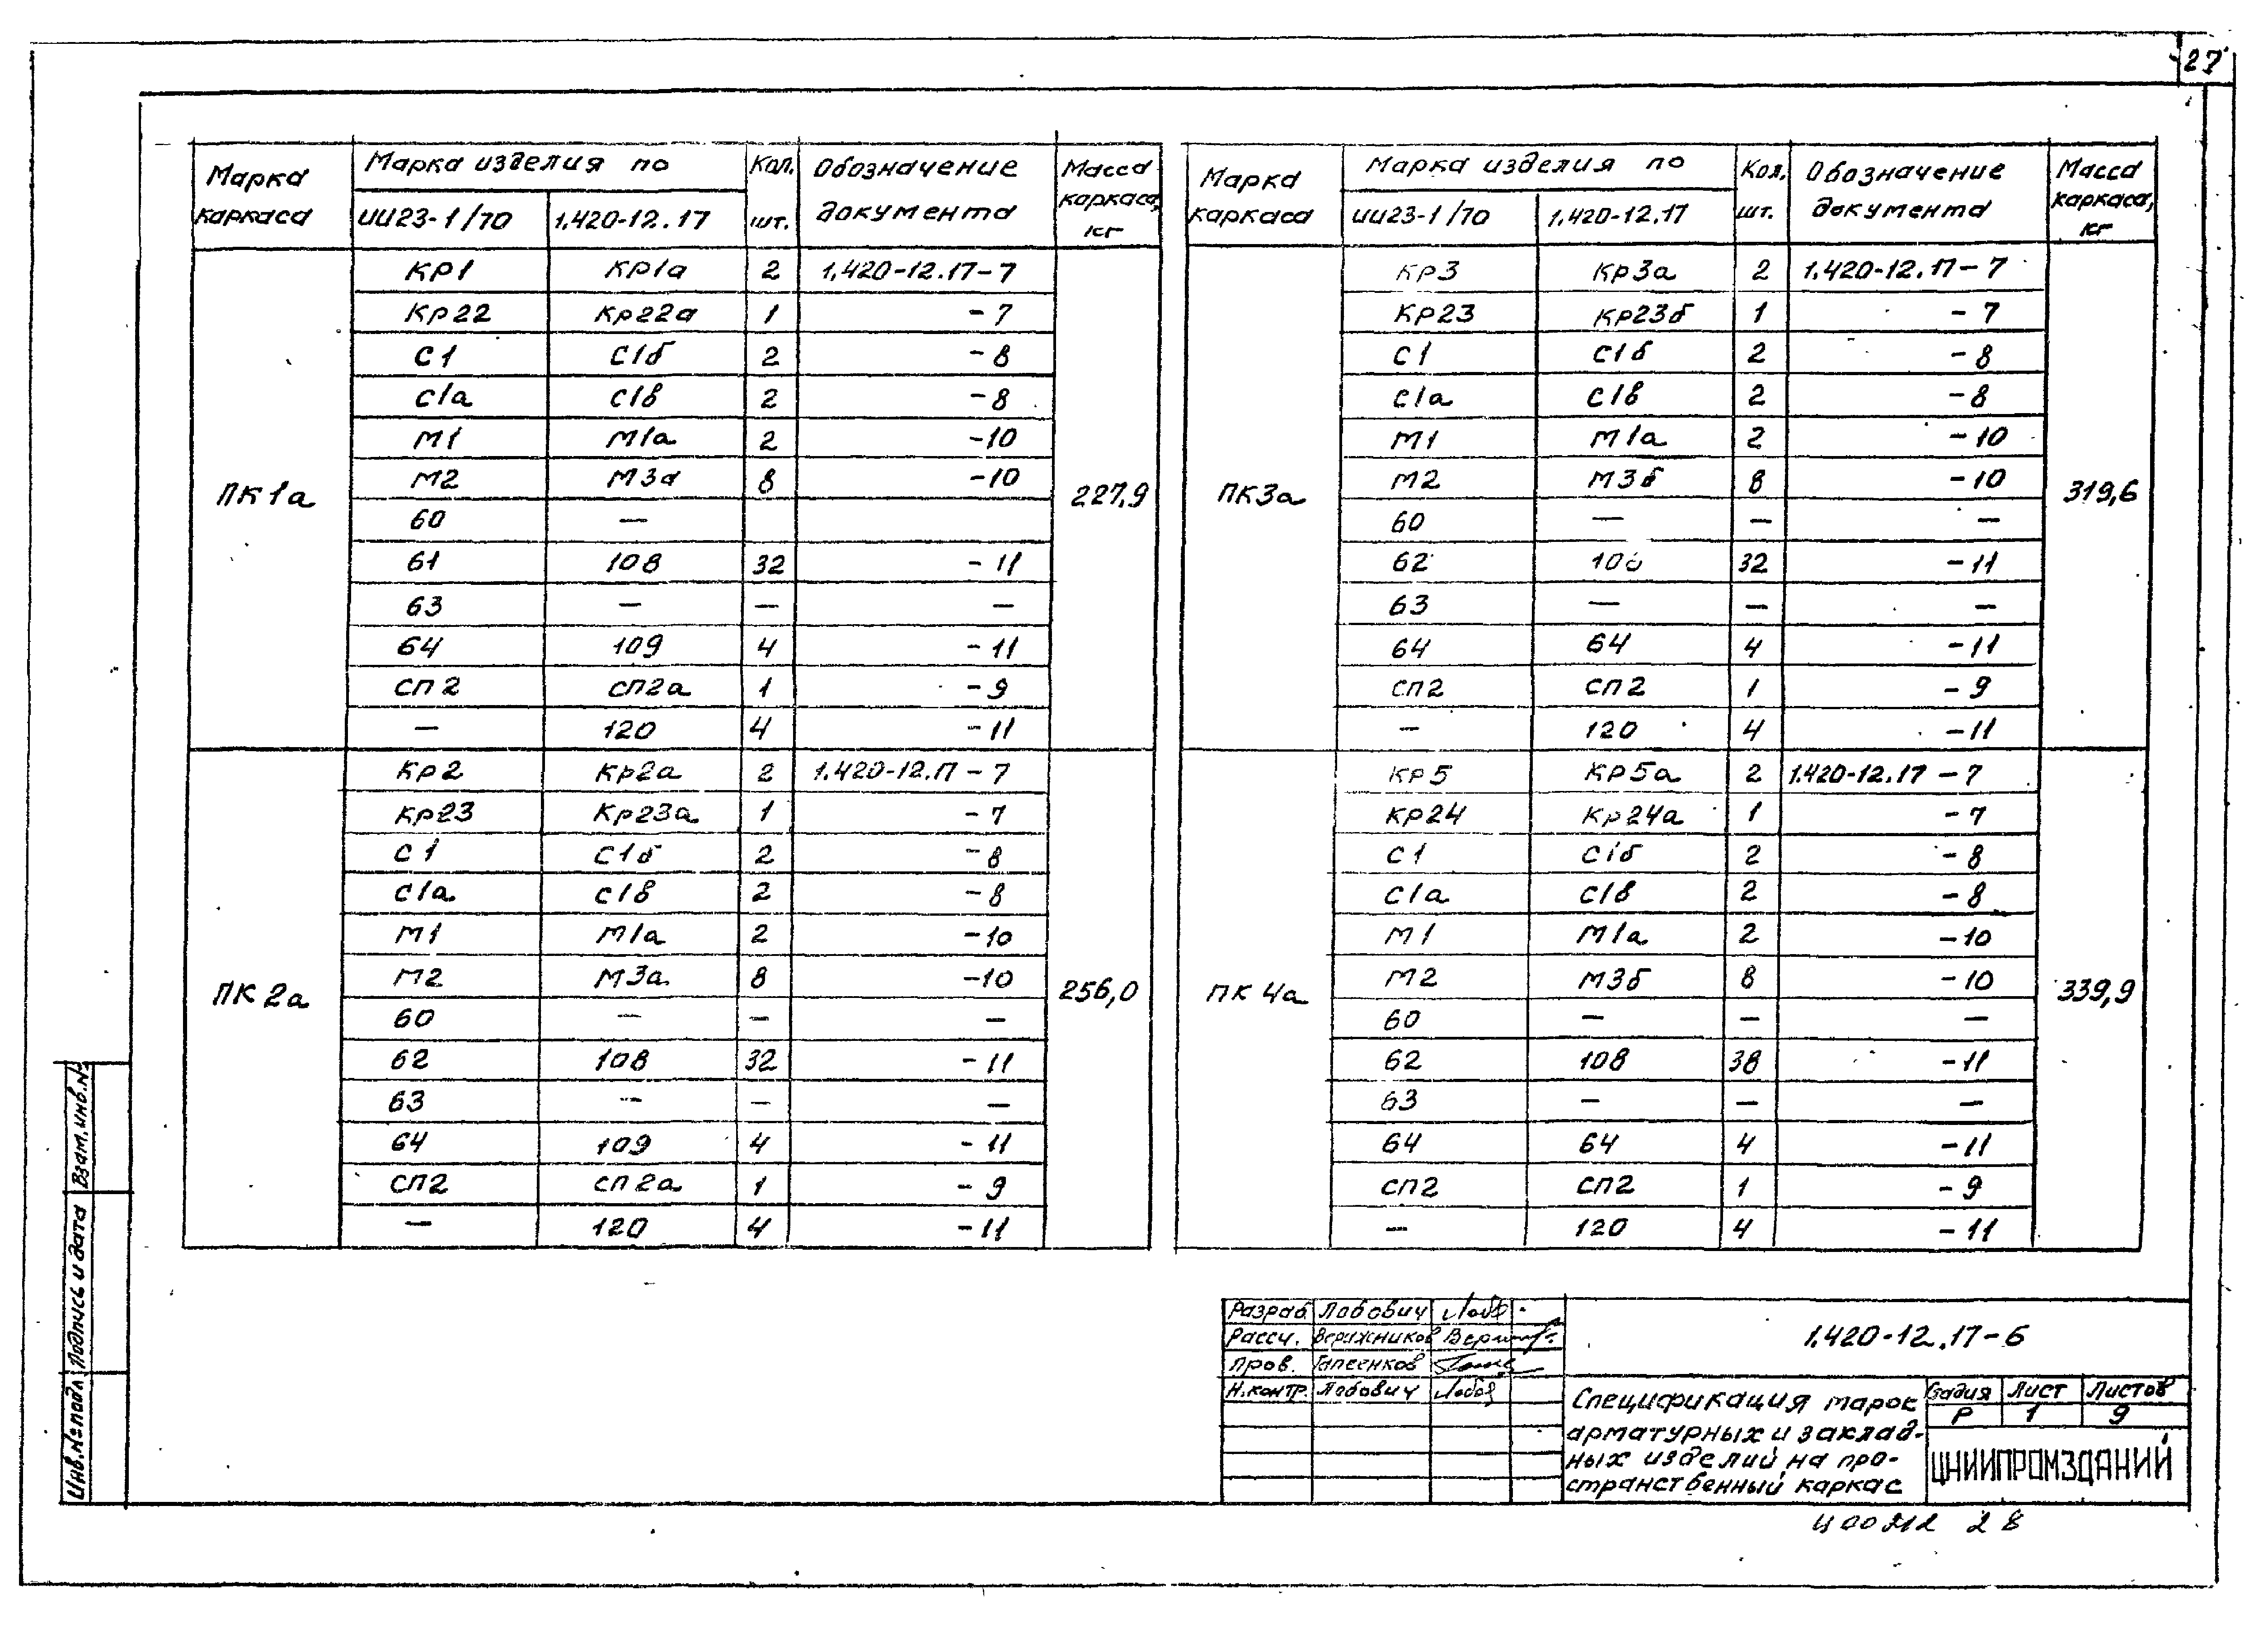 27
Марка каркаса | Марка изделия по | Кол. шт. | Обозначение документа | Масса каркаса, кг
ИИ23-1/70 | 1.420-12.17
ПК1а | 227,9
КР1 | КР1а | 2 | 1.420-12.17-7
Кр22 | Кр22а | 1 | -7
С1 | С1б | 2 | -8
С1а | С1в | 2 | -8
М1 | М1а | 2 | -10
М2 | М3а | 8 | -10
60 | —
61 | 108 | 32 | -11
63 | — | — | —
64 | 109 | 4 | -11
СП2 | СП2а | 1 | -9
— | 120 | 4 | -11
ПК2а | 256,0
Кр2 | Кр2а | 2 | 1.420-12.17-7
Кр23 | Кр23а | 1 | -7
С1 | С1б | 2 | -8
С1а | С1в | 2 | -8
М1 | М1а | 2 | -10
М2 | М3а | 8 | -10
60 | — | — | —
62 | 108 | 32 | -11
63 | — | — | —
64 | 109 | 4 | -11
СП2 | СП2а | 1 | -9
— | 120 | 4 | -11
Марка каркаса | Марка изделия по | Кол. шт. | Обозначение документа | Масса каркаса, кг
ИИ23-1/70 | 1.420-12.17
ПК3а | 319,6
Кр3 | Кр3а | 2 | 1.420-12.17-7
Кр23 | Кр23б | 1 | -7
С1 | С1б | 2 | -8
С1а | С1в | 2 | -8
М1 | М1а | 2 | -10
М2 | М3б | 8 | -10
60 | — | — | —
62 | 108 | 32 | -11
63 | — | — | —
64 | 64 | 4 | -11
СП2 | СП2 | 1 | -9
— | 120 | 4 | -11
ПК4а | 339,9
КР5 | КР5а | 2 | 1.420-12.17-7
Кр24 | Кр24а | 1 | -7
С1 | С1б | 2 | -8
С1а | С1в | 2 | -8
М1 | М1а | 2 | -10
М2 | М3б | 8 | -10
60 | — | — | —
62 | 108 | 38 | -11
63 | — | — | —
64 | 64 | 4 | -11
СП2 | СП2 | 1 | -9
— | 120 | 4 | -11
Взам.инв.№
Подпись и дата
Инв.№подл.
Разраб. Лобович
Рассч. Верижников
Пров. Гапеенков
Н.контр. Лобович
1.420-12.17-6
Спецификация марок
арматурных и заклад-
ных изделий на про-
странственный каркас
Стадия Лист Листов
Р 1 9
ЦНИИПРОМЗДАНИЙ
Ц00212 28